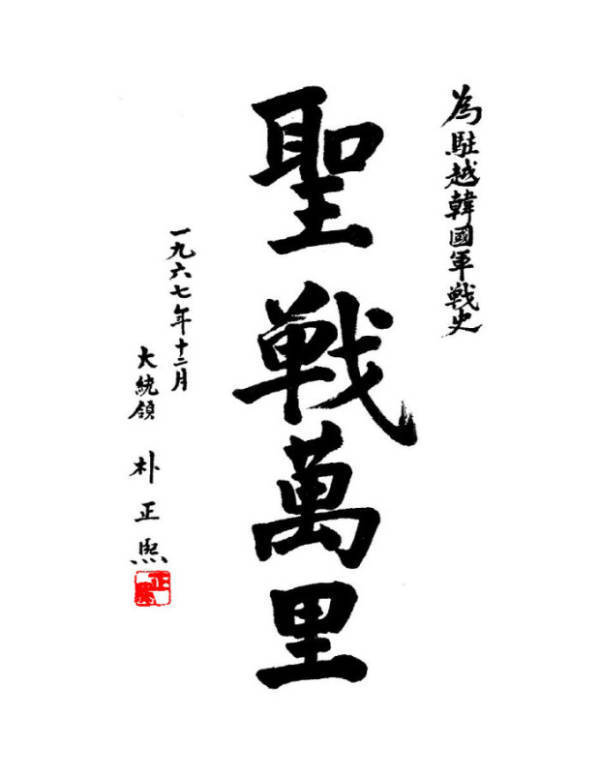 為駐越韓國軍戦史
聖戦萬里
一九六七年十二月
大統領 朴正熙
正熙